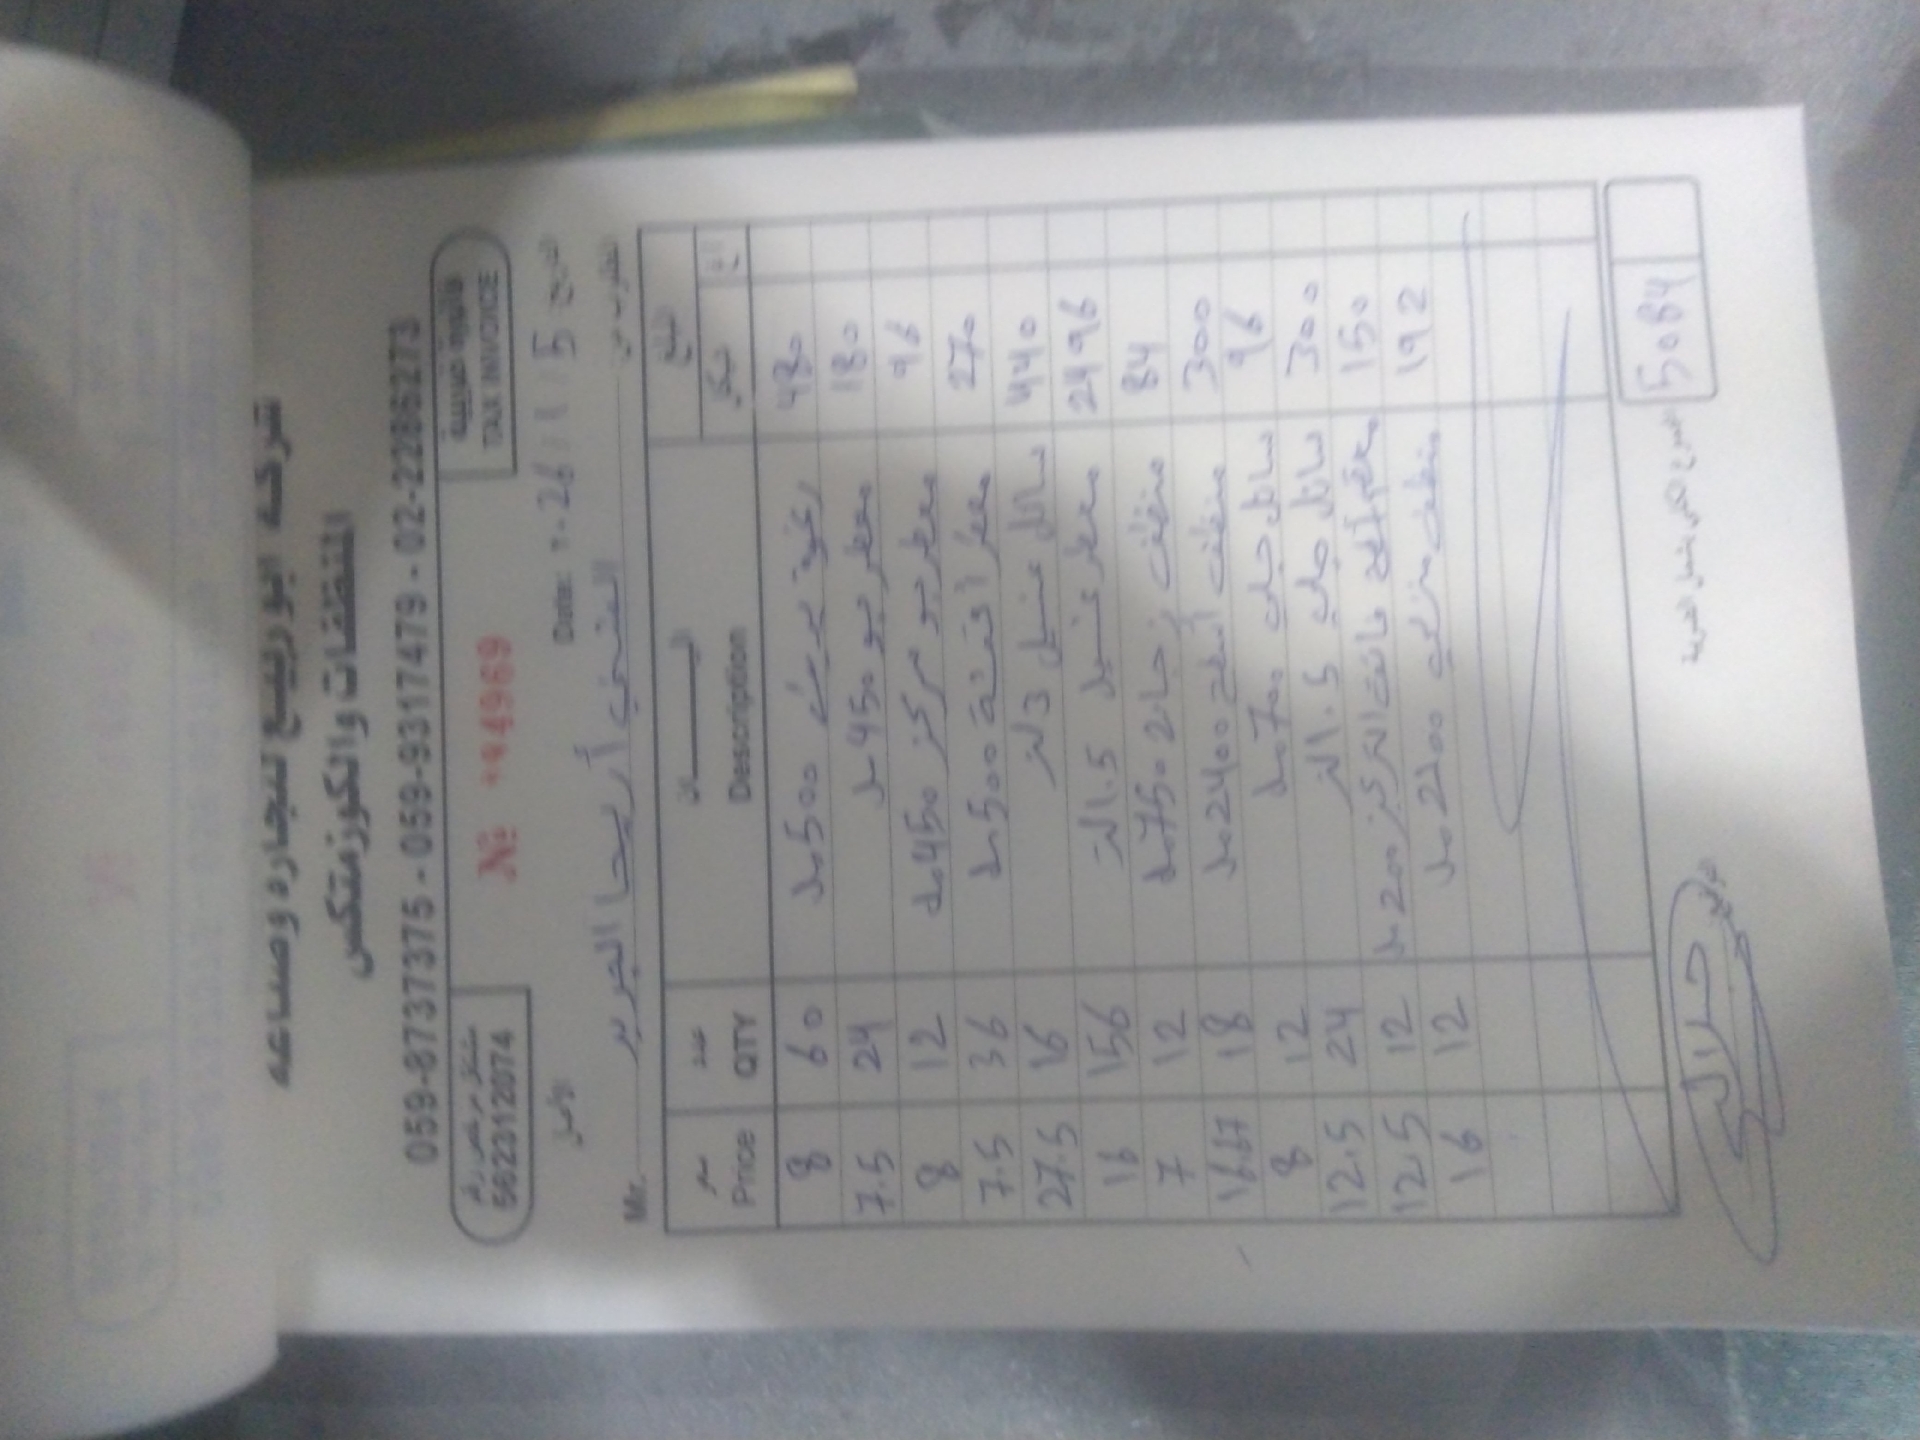 شركة ابو ربيع لتجارة وصناعة
المنظفات والكوزمتكس
059-8737375 - 059-9317479 - 02-2286273
مشتغل مرخص رقم
562231120074
№ **4969
فاتورة ضريبية
TAX INVOICE
Date: 2026/1/5 التاريخ
Mr. أريحا
سعر عدد البيـــــان المبلغ
Price QTY Description شيكل
8 60 500 مل 480
7.5 24 معطر جو 450 مل 180
8 12 معطر جو مركز 450 مل 96
7.5 36 معطر أقمشة 500 مل 270
27.5 16 سائل غسيل 3 لتر 440
16 156 معطر غسيل 1.5 لتر 2496
7 12 منظف زجاج 750 مل 84
16.67 18 منظف أسطح 2400 مل 300
8 12 سائل جلي 700 مل 96
12.5 24 سائل جلي 1.5 لتر 300
12.5 12 2000 مل 150
16 12 منظف منزلي 2200 مل 192
5084